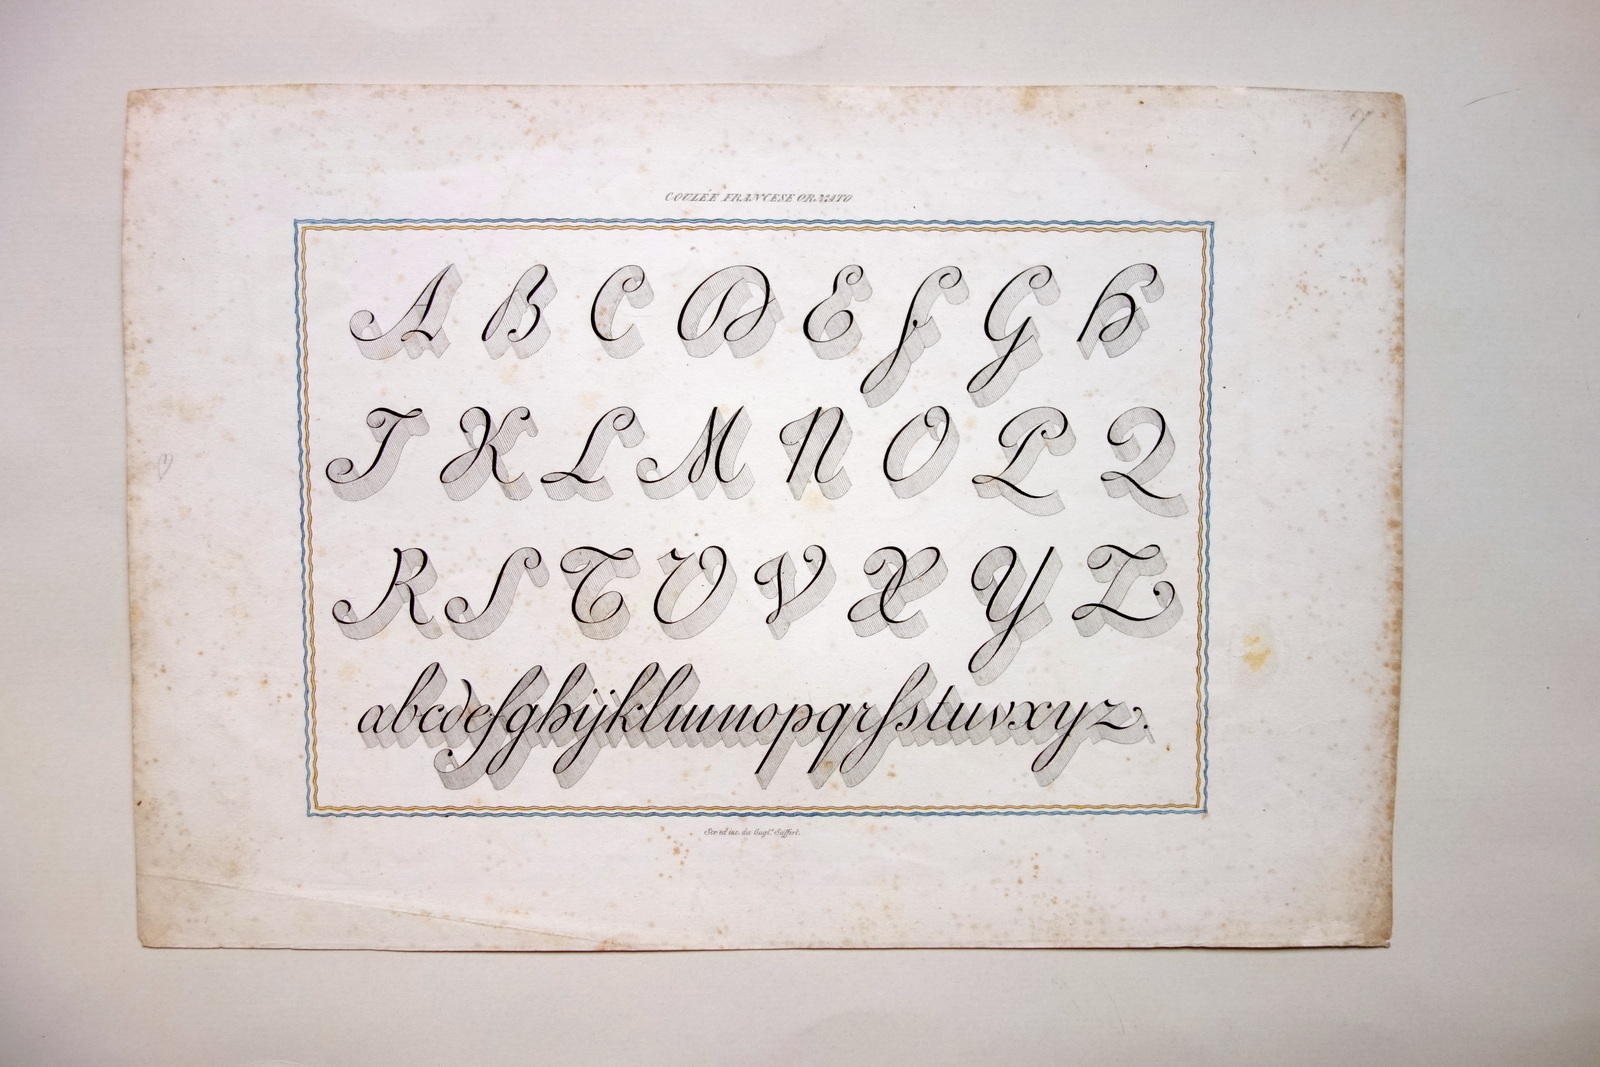 COULÉE FRANCESE ORNATO
A B C D E F G H
I K L M N O P Q
R S T U V X Y Z
abcdefghijklmnopqrſstuvxyz.
Scr. ed inc. da Gugl.º Siffert.
7